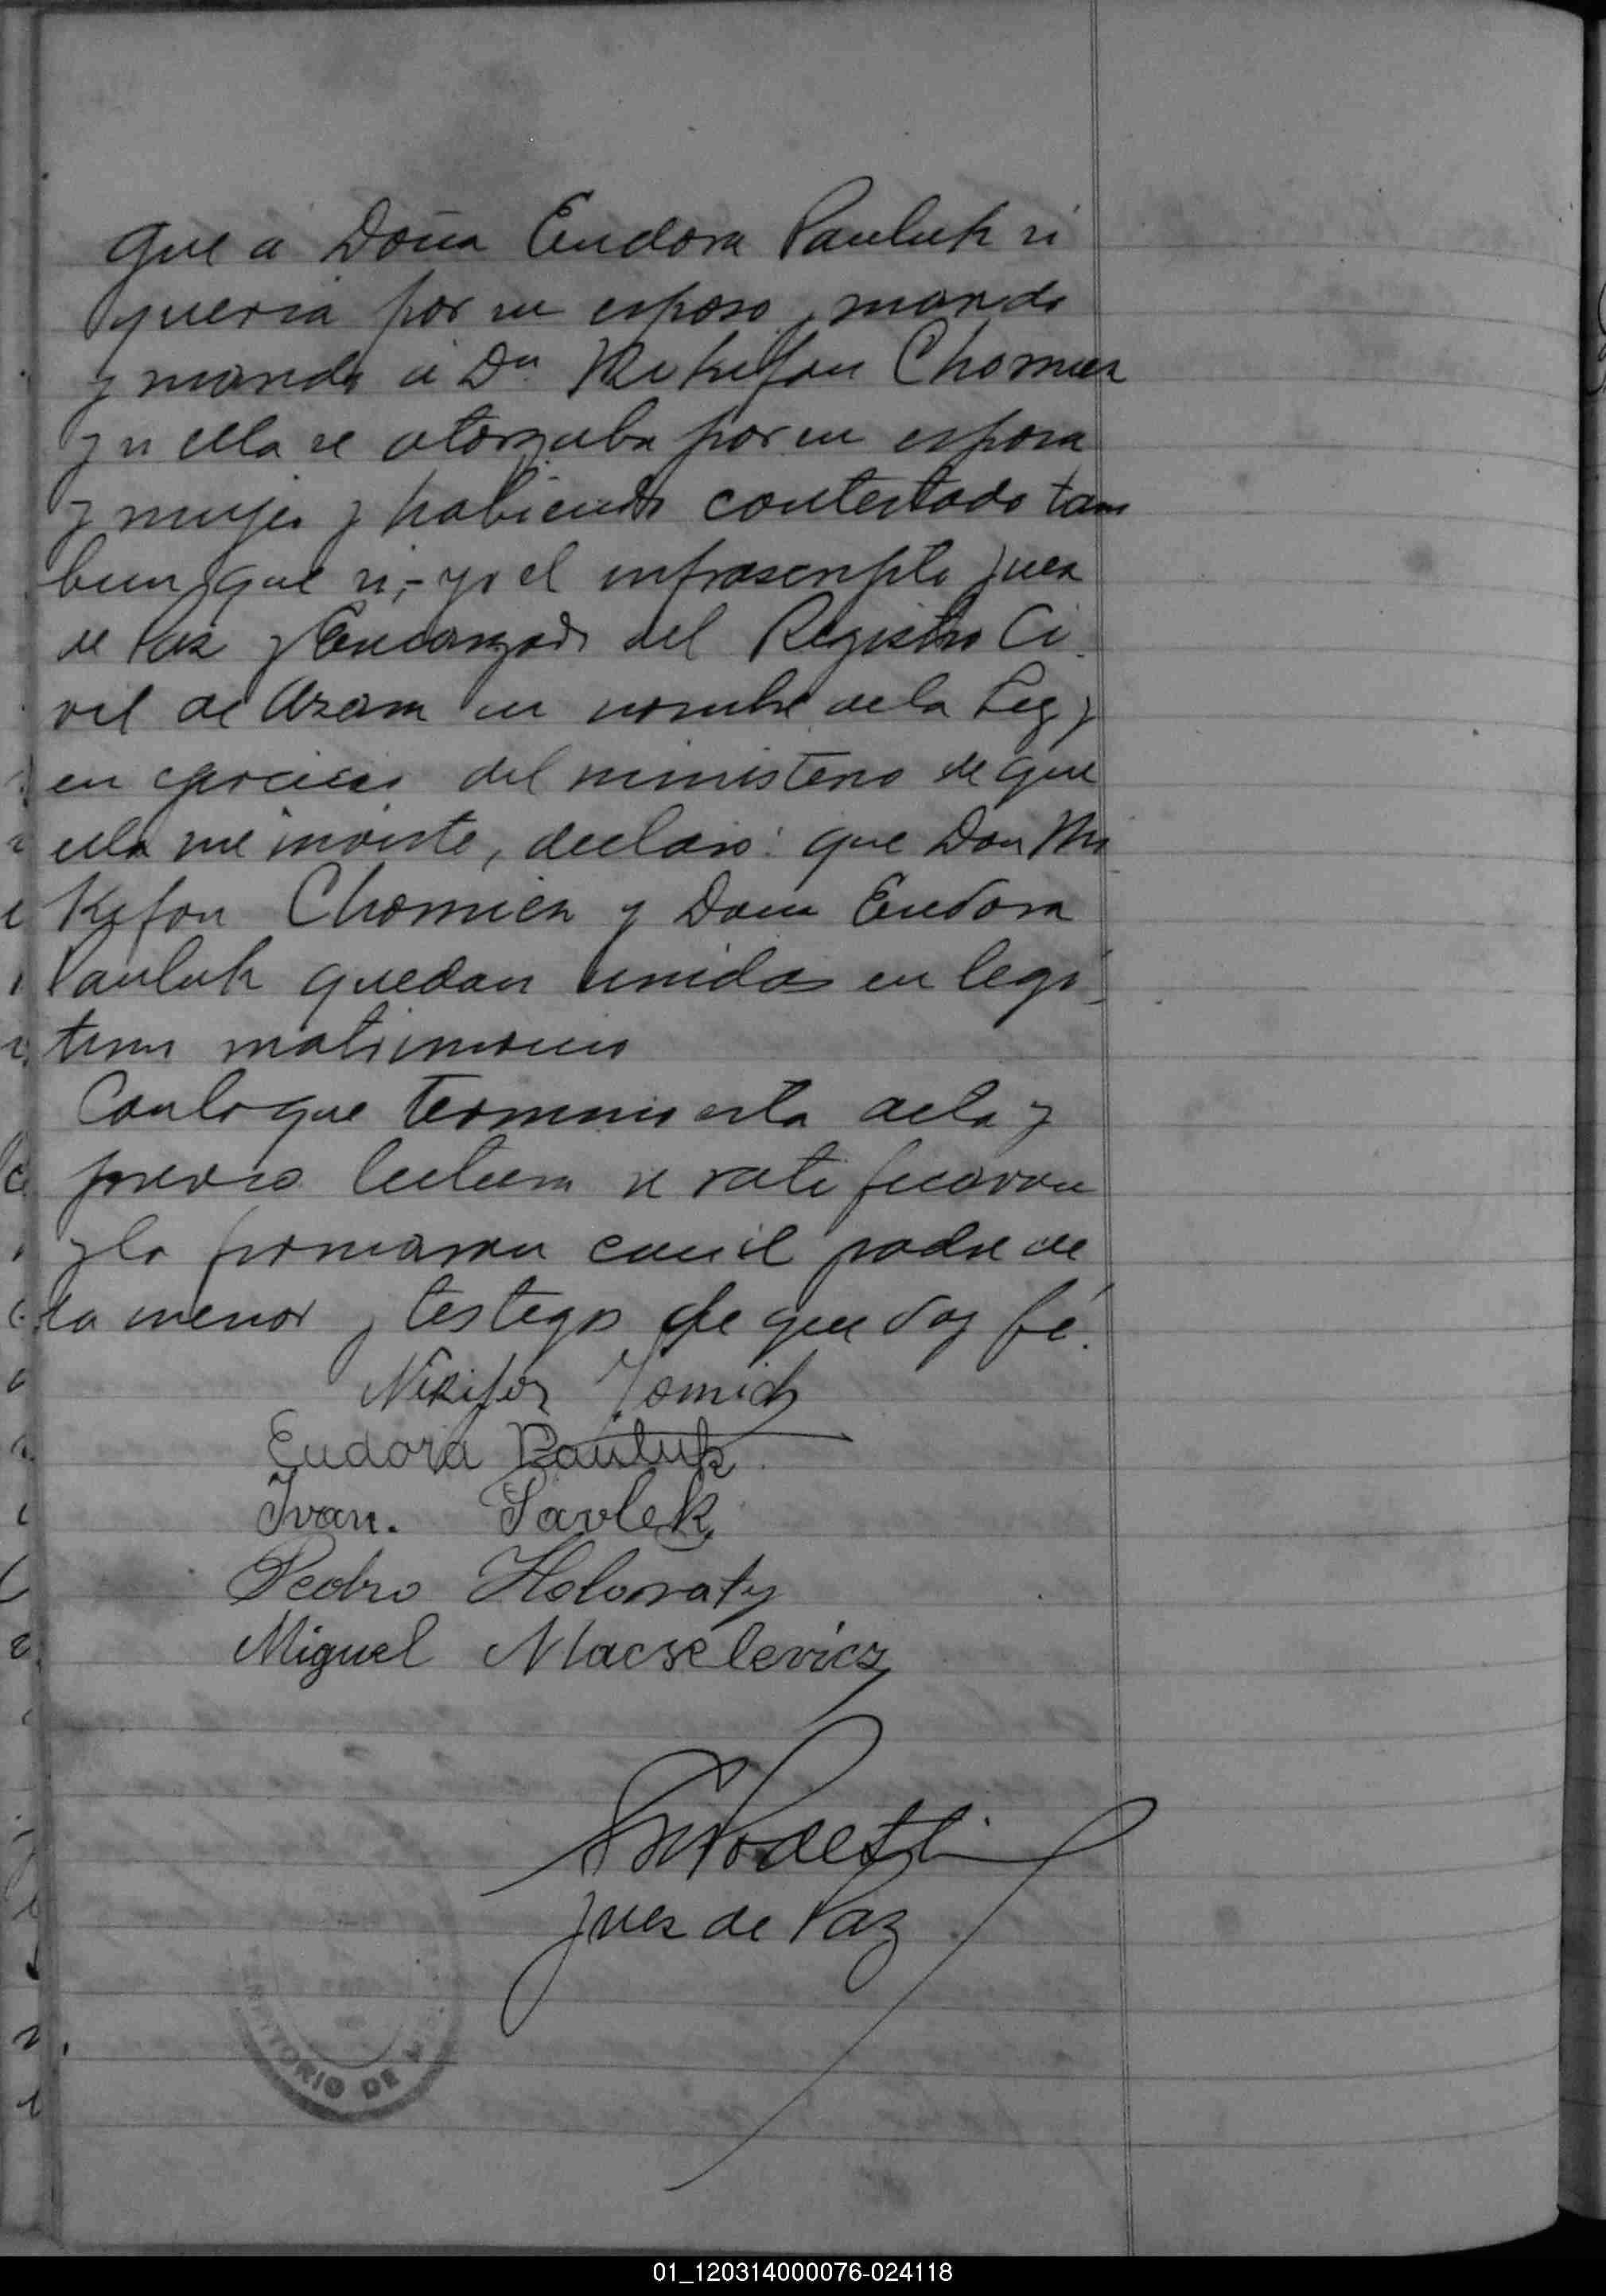 que a Doña Eudora Pauluk si
queria por su esposo, marido
y marido a Dn Nikefon Chomicz
y si ella se otorgaba por su esposa
y mujer y habiendo contestado tam
bien que si,- yo el infrascripto Juez
de Paz y Encargado del Registro Ci
vil de Azara en nombre de la Ley y
en ejercicio del ministerio de que
ella me inviste, declaro: que Don Ni
Kefon Chomicz y Doña Eudora
Pauluk quedan unidos en legi-
timo matrimonio
Con lo que termino esta acta y
previa lectura se ratificaron
y la firmaron con el padre de
la menor y testigos de que doy fé.
Nikifor Jomich
Eudora Pauluk
Ivan. Pavlek
Pedro Holovaty
Miguel Macselevicz
Podesti
Juez de Paz
TORIO DE
01_120314000076-024118